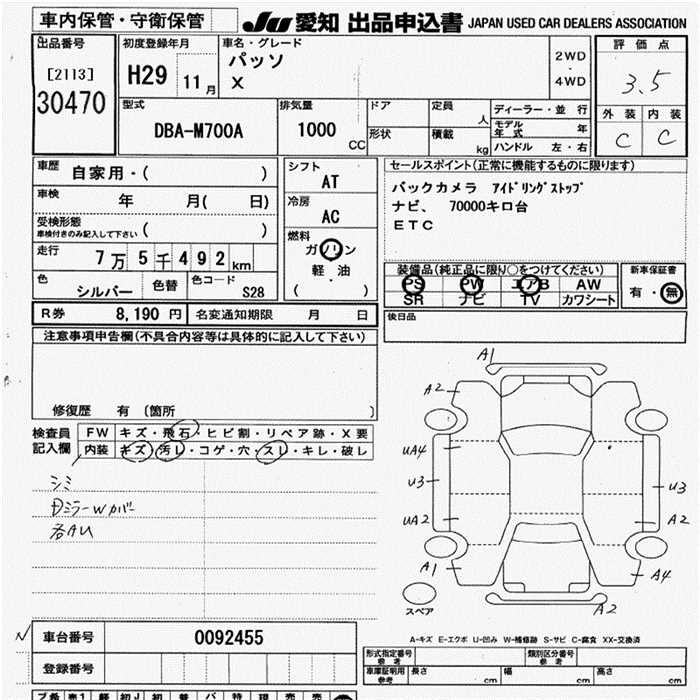 車内保管・守衛保管
JU 愛知 出品申込書 JAPAN USED CAR DEALERS ASSOCIATION
出品番号
[2113]
30470
初度登録年月
H29 11 月
車名・グレード
パッソ
X
2WD
・
4WD
評価点
3.5
外装 内装
C C
型式
DBA-M700A
排気量
1000 CC
ドア
形状
定員 人
積載 kg
ディーラー・並行
モデル年式 年
ハンドル 左・右
車歴 自家用・( )
車検 年 月( 日)
受検形態
車検付きのみ記入して下さい ( )
走行 7万5千492km
色 シルバー 色替 色コード S28
シフト
AT
冷房
AC
燃料
ガソリン
軽・油
( )
セールスポイント(正常に機能するものに限ります)
バックカメラ アイドリングストップ
ナビ、 70000キロ台
ETC
装備品(純正品に限り○をつけてください)
PS PW エアB AW
SR ナビ TV カワシート
新車保証書
有・無
R券 8,190 円 名変通知期限 月 日
後日品
注意事項申告欄(不具合内容等は具体的に記入して下さい)
修復歴 有 〔箇所 〕
検査員
記入欄
FW キズ・飛石・ヒビ割・リペア跡・X要
内装 キズ・汚レ・コゲ・穴・スレ・キレ・破レ
シミ
各AU
A1
A2
UA4
U3
UA2
A1
U3
A2
A4
A2
スペア
A-キズ E-エクボ U-凹み W-補修跡 S-サビ C-腐食 XX-交換済
車台番号 0092455
登録番号
形式指定番号
参考
類別区分番号
参考
車庫証明用
参考
長さ cm 幅 cm 高さ cm